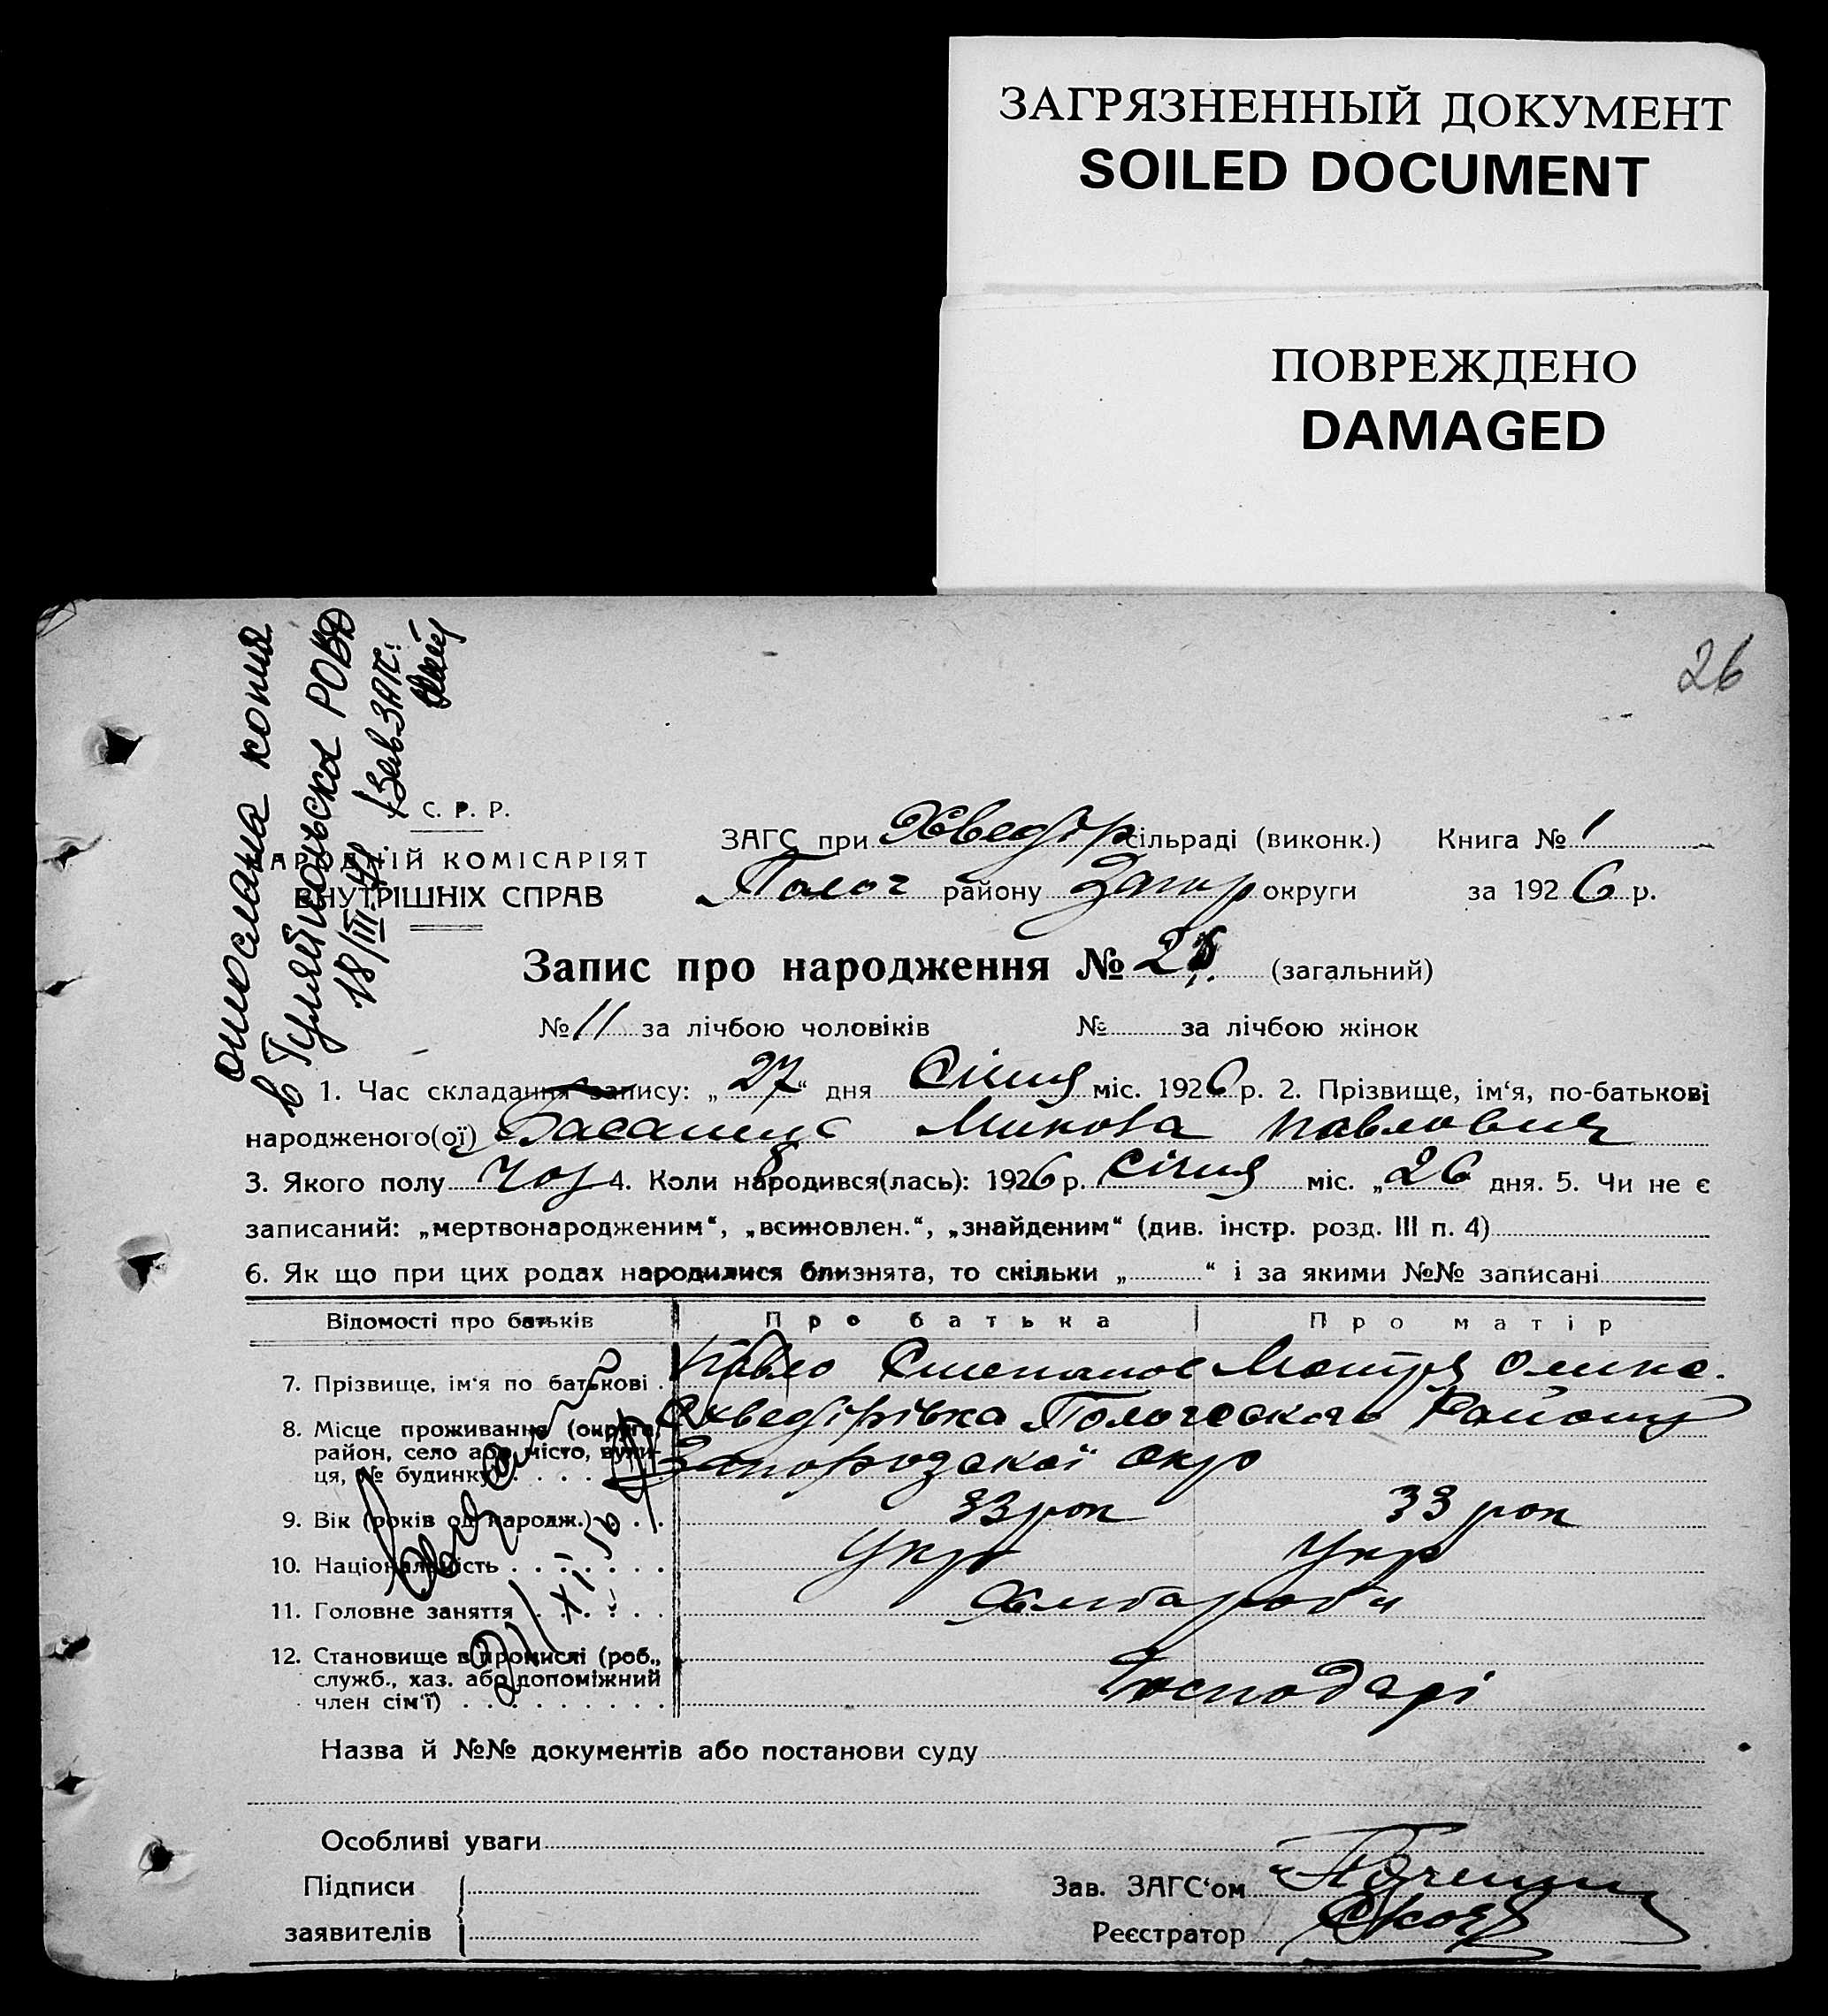 ЗАГРЯЗНЕННЫЙ ДОКУМЕНТ
SOILED DOCUMENT
ПОВРЕЖДЕНО
DAMAGED
26
отослана копия
в Гуляйпольска РОВД
18/III
Зав. ЗАГС:
С. Р. Р.
АРОДНІЙ КОМІСАРІЯТ
ВНУТРІШНІХ СПРАВ
ЗАГС при Хведір сільраді (виконк.) Книга № 1
Полог району Запор округи за 1926 р.
Запис про народження № (загальний)
№ 11 за лічбою чоловіків № за лічбою жінок
1. Час складання запису: „27“ дня Січня міс. 1926 р. 2. Прізвище, ім‘я, по-батькові
народженого(ої) Микола Павлович
3. Якого полу Чол 4. Коли народився(лась): 1926 р. Січня міс. „26 дня. 5. Чи не є
записаний: „мертвонародженим“, „всиновлен.“, „знайденим“ (див. інстр. розд. III п. 4)
6. Як що при цих родах народилися близнята, то скільки „ “ і за якими №№ записані
Відомості про батьків Про батька Про матір
7. Прізвище, ім‘я по батькові . Павло Степанов Мотря Олекс.
8. Місце проживання (округа, Хведірівка Пологовського Району
район, село або місто, вули-
ця, № будинку) . . . . Запорозської окр
9. Вік (років од народж.) . . . 33 рок 33 рок
10. Національність . . . . . . . Укр Укр
11. Головне заняття . . . . . Хлібороби
12. Становище в промислі (роб.,
служб., хаз. або допоміжний
член сім‘ї) . . . . . . . . . Господарі
Назва й №№ документів або постанови суду
Особливі уваги
Підписи
заявителів
Зав. ЗАГС‘ом
Реєстратор